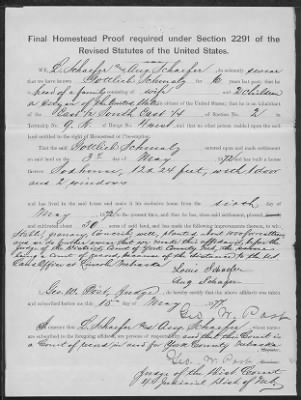 Final Homestead Proof required under Section 2291 of the
Revised Statutes of the United States.
We, L. Schaefer and Aug. Schaefer do solemnly swear
that we have known Gottlieb Schmalz for 6 years last past; that he
is head of a family consisting of wife and 2 children
a citizen of the United States; that he is an inhabitant
of the East ½ South East ¼ of Section No. 2 in
Township No. 9 N. of Range No. 4 west and that no other person resided upon the said
land entitled to the right of Homestead or Pre-emption.
That the said Gottlieb Schmalz entered upon and made settlement
on said land on the 3rd day of May 1872 and has built a house
thereon Sod house, 12 x 24 feet, with 1 door
and 2 windows
and has lived in the said house and made it his exclusive home from the sixth day of
May 1872 to the present time, and that he has, since said settlement, plowed
and cultivated 50 acres of said land, and has made the following improvements thereon, to wit:
Judge of the District Court of York County
being a court of record, because of the distance to the U.S.
Land Office at Lincoln Nebraska
Louis Schaefer
Aug. Schaefer
I, Geo. W. Post, Judge do hereby certify that the above affidavit was
and subscribed before me this 15th day of May 1877.
Geo. W. Post
I certify that L. Schaefer and Aug. Schaefer whose names are
subscribed to the foregoing affidavit, are persons of respectability and that this Court is
a Court of record in and for York County Nebraska
Geo. W. Post
Judge of the Dist. Court
4th Judicial Dist. of Neb.